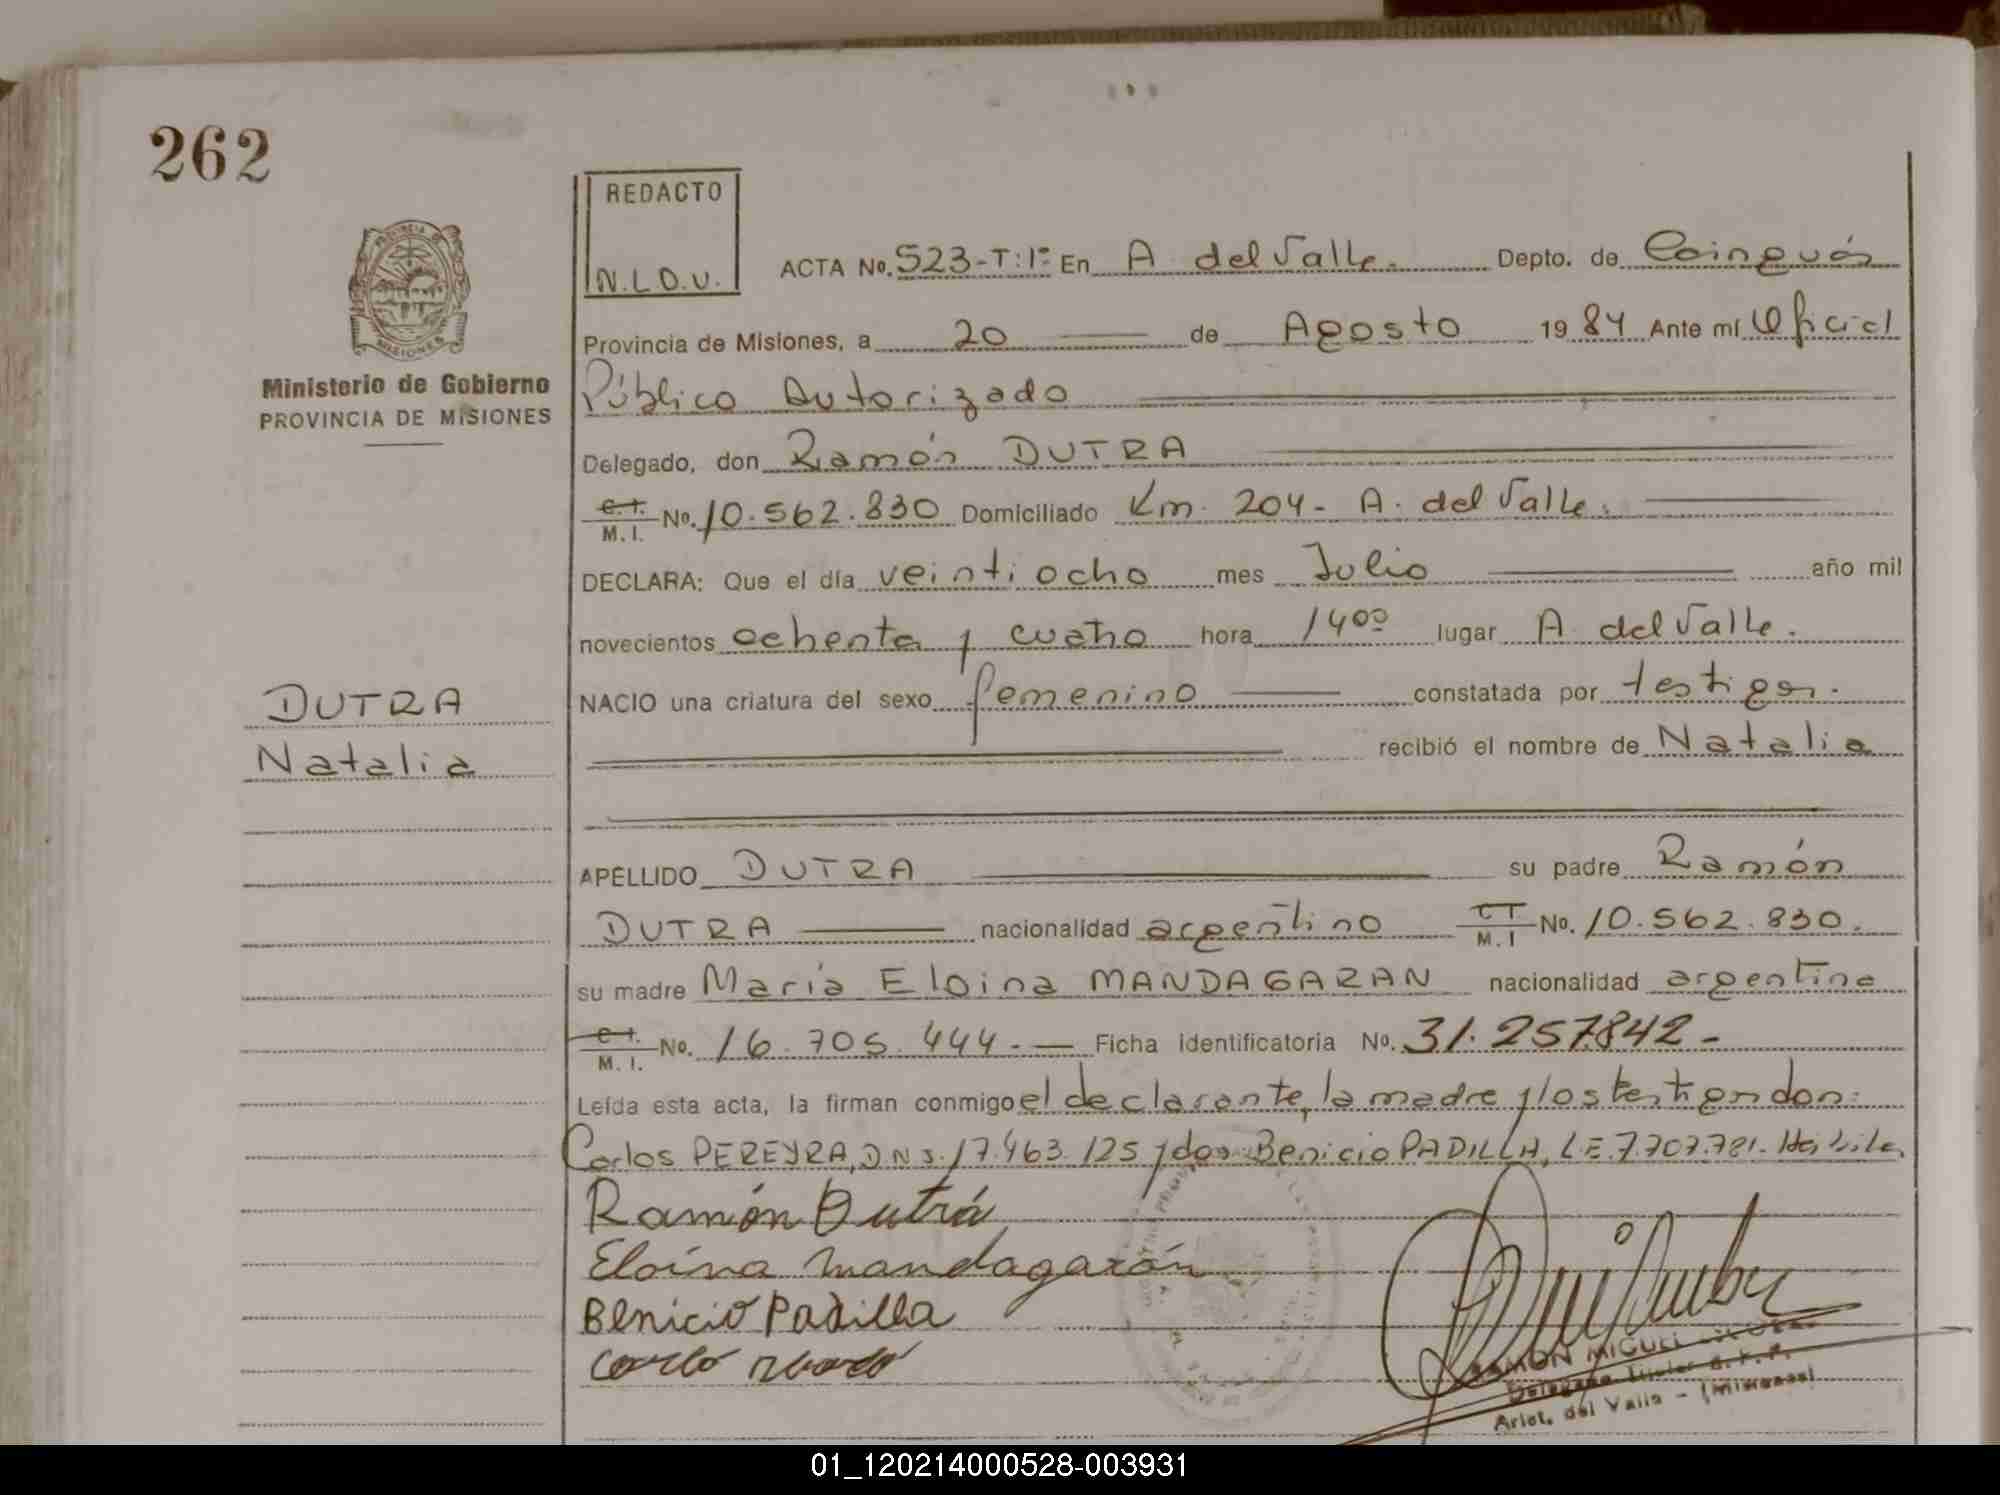 262
REDACTO
N.L.D.V.
PROVINCIA DE
MISIONES
Ministerio de Gobierno
PROVINCIA DE MISIONES
ACTA No. 523-T:1º En A del Valle. Depto. de Cainguás
Provincia de Misiones, a 20 de Agosto 1984 Ante mí Oficial
Público Autorizado
Delegado, don Ramón DUTRA
C.I. M.I. No. 10.562.830 Domiciliado Km. 204 - A. del Valle.
DECLARA: Que el día veinti ocho mes Julio año mil
novecientos ochenta y cuatro hora 14ºº lugar A del Valle.
NACIO una criatura del sexo femenino constatada por testigos.
recibió el nombre de Natalia
DUTRA
Natalia
APELLIDO DUTRA su padre Ramón
DUTRA nacionalidad argentino C.I. M.I No. 10.562.830.
su madre María Eloina MANDAGARAN nacionalidad argentina
C.I. M.I. No. 16.705.444.- Ficha identificatoria No. 31.257.842-
Leída esta acta, la firman conmigo el declarante, la madre y los testigos don:
Carlos PEREYRA, D N I. 17.463.125 y don Benicio PADILLA, L E. 7.707.781.
Ramón Dutrá
Eloína Mandagarán
Benicio Padilla
RAMON MIGUEL
Delegado Titular R. P. P.
Arist. del Valle - (Misiones)
01_120214000528-003931